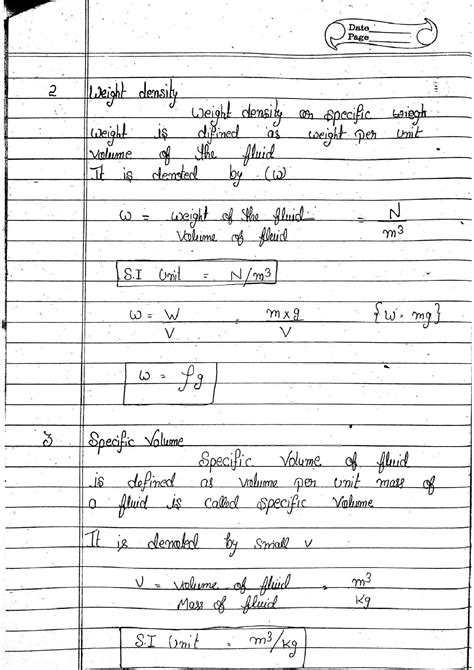 Date
Page
2 Weight density
Weight density or specific weigh
weight is difined as weight per unit
volume of the fluid
It is denoted by (w)
w = weight of the fluid = N
Volume of fluid m³
S.I Unit = N/m³
w = W = m×g {W = mg}
V V
w = ρg
3 Specific Volume
Specific Volume of fluid
is defined as volume per unit mass of
a fluid is called specific Volume
It is denoted by small v
V = volume of fluid = m³
Mass of fluid kg
S.I Unit = m³/kg